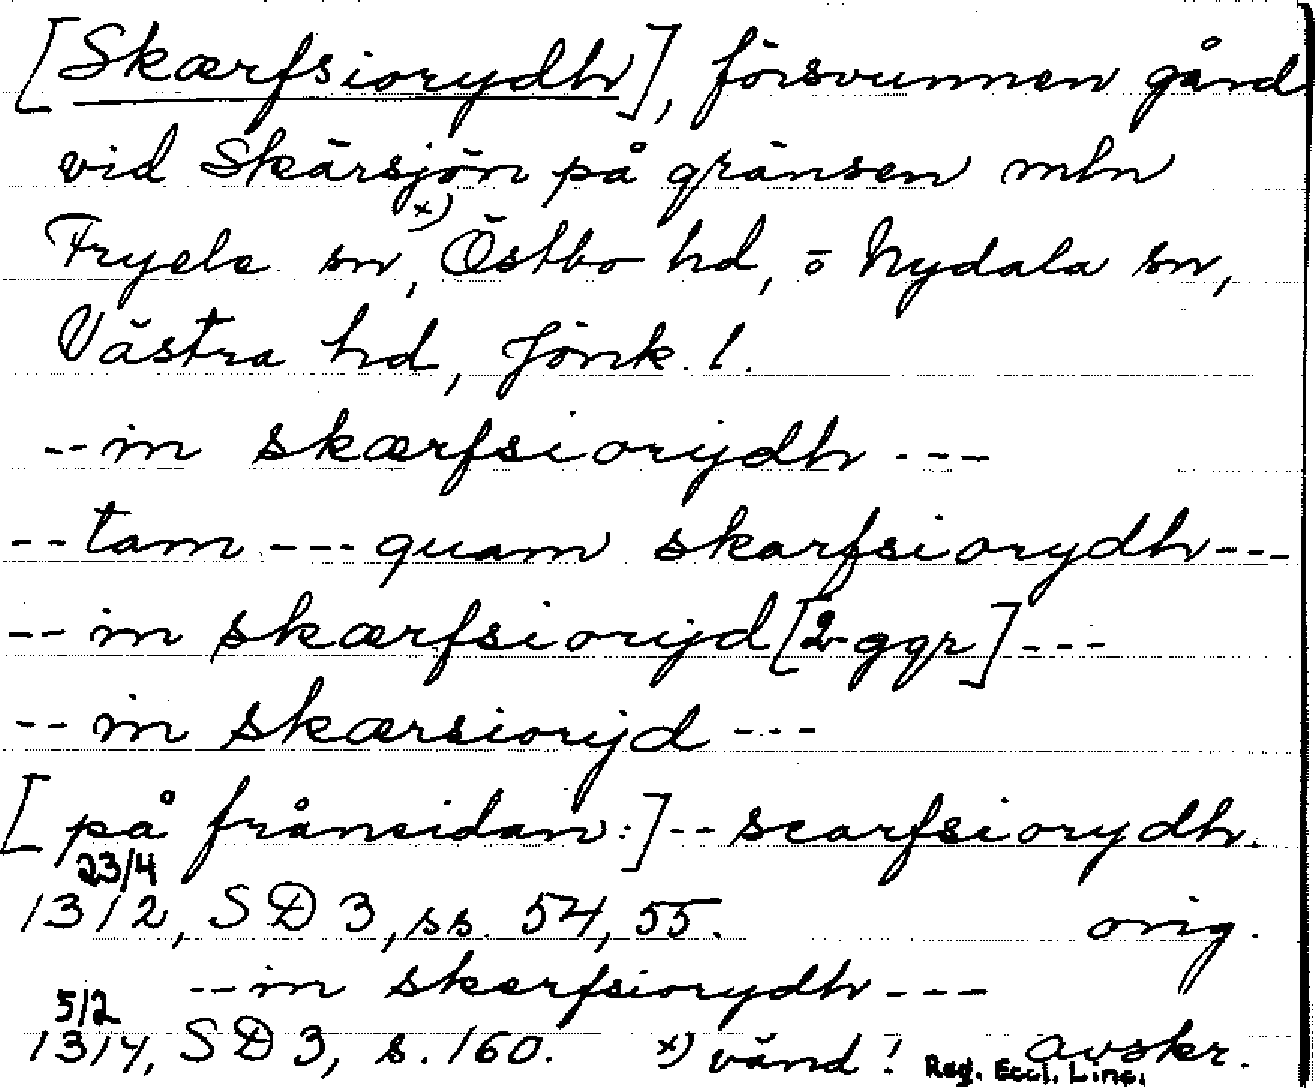 [Skærfsiorydh], försvunnen gård
vid Skärsjön på gränsen mln
Fryele sn x), Östbo hd, o Nydala sn,
Västra hd, Jönk. l.
-- in skærfsiorijdh ---
-- tam --- quam skarfsiorydh ---
-- in skærfsiorijd [2 ggr] ---
-- in skærsiorijd ---
[på frånsidan:] -- scarfsiorydh.
23/4
1312, SD 3, ss. 54, 55. orig.
-- in skerfsiorydh ---
5/2
1314, SD 3, s. 160. x) vänd! avskr.
Reg. Eccl. Linc.